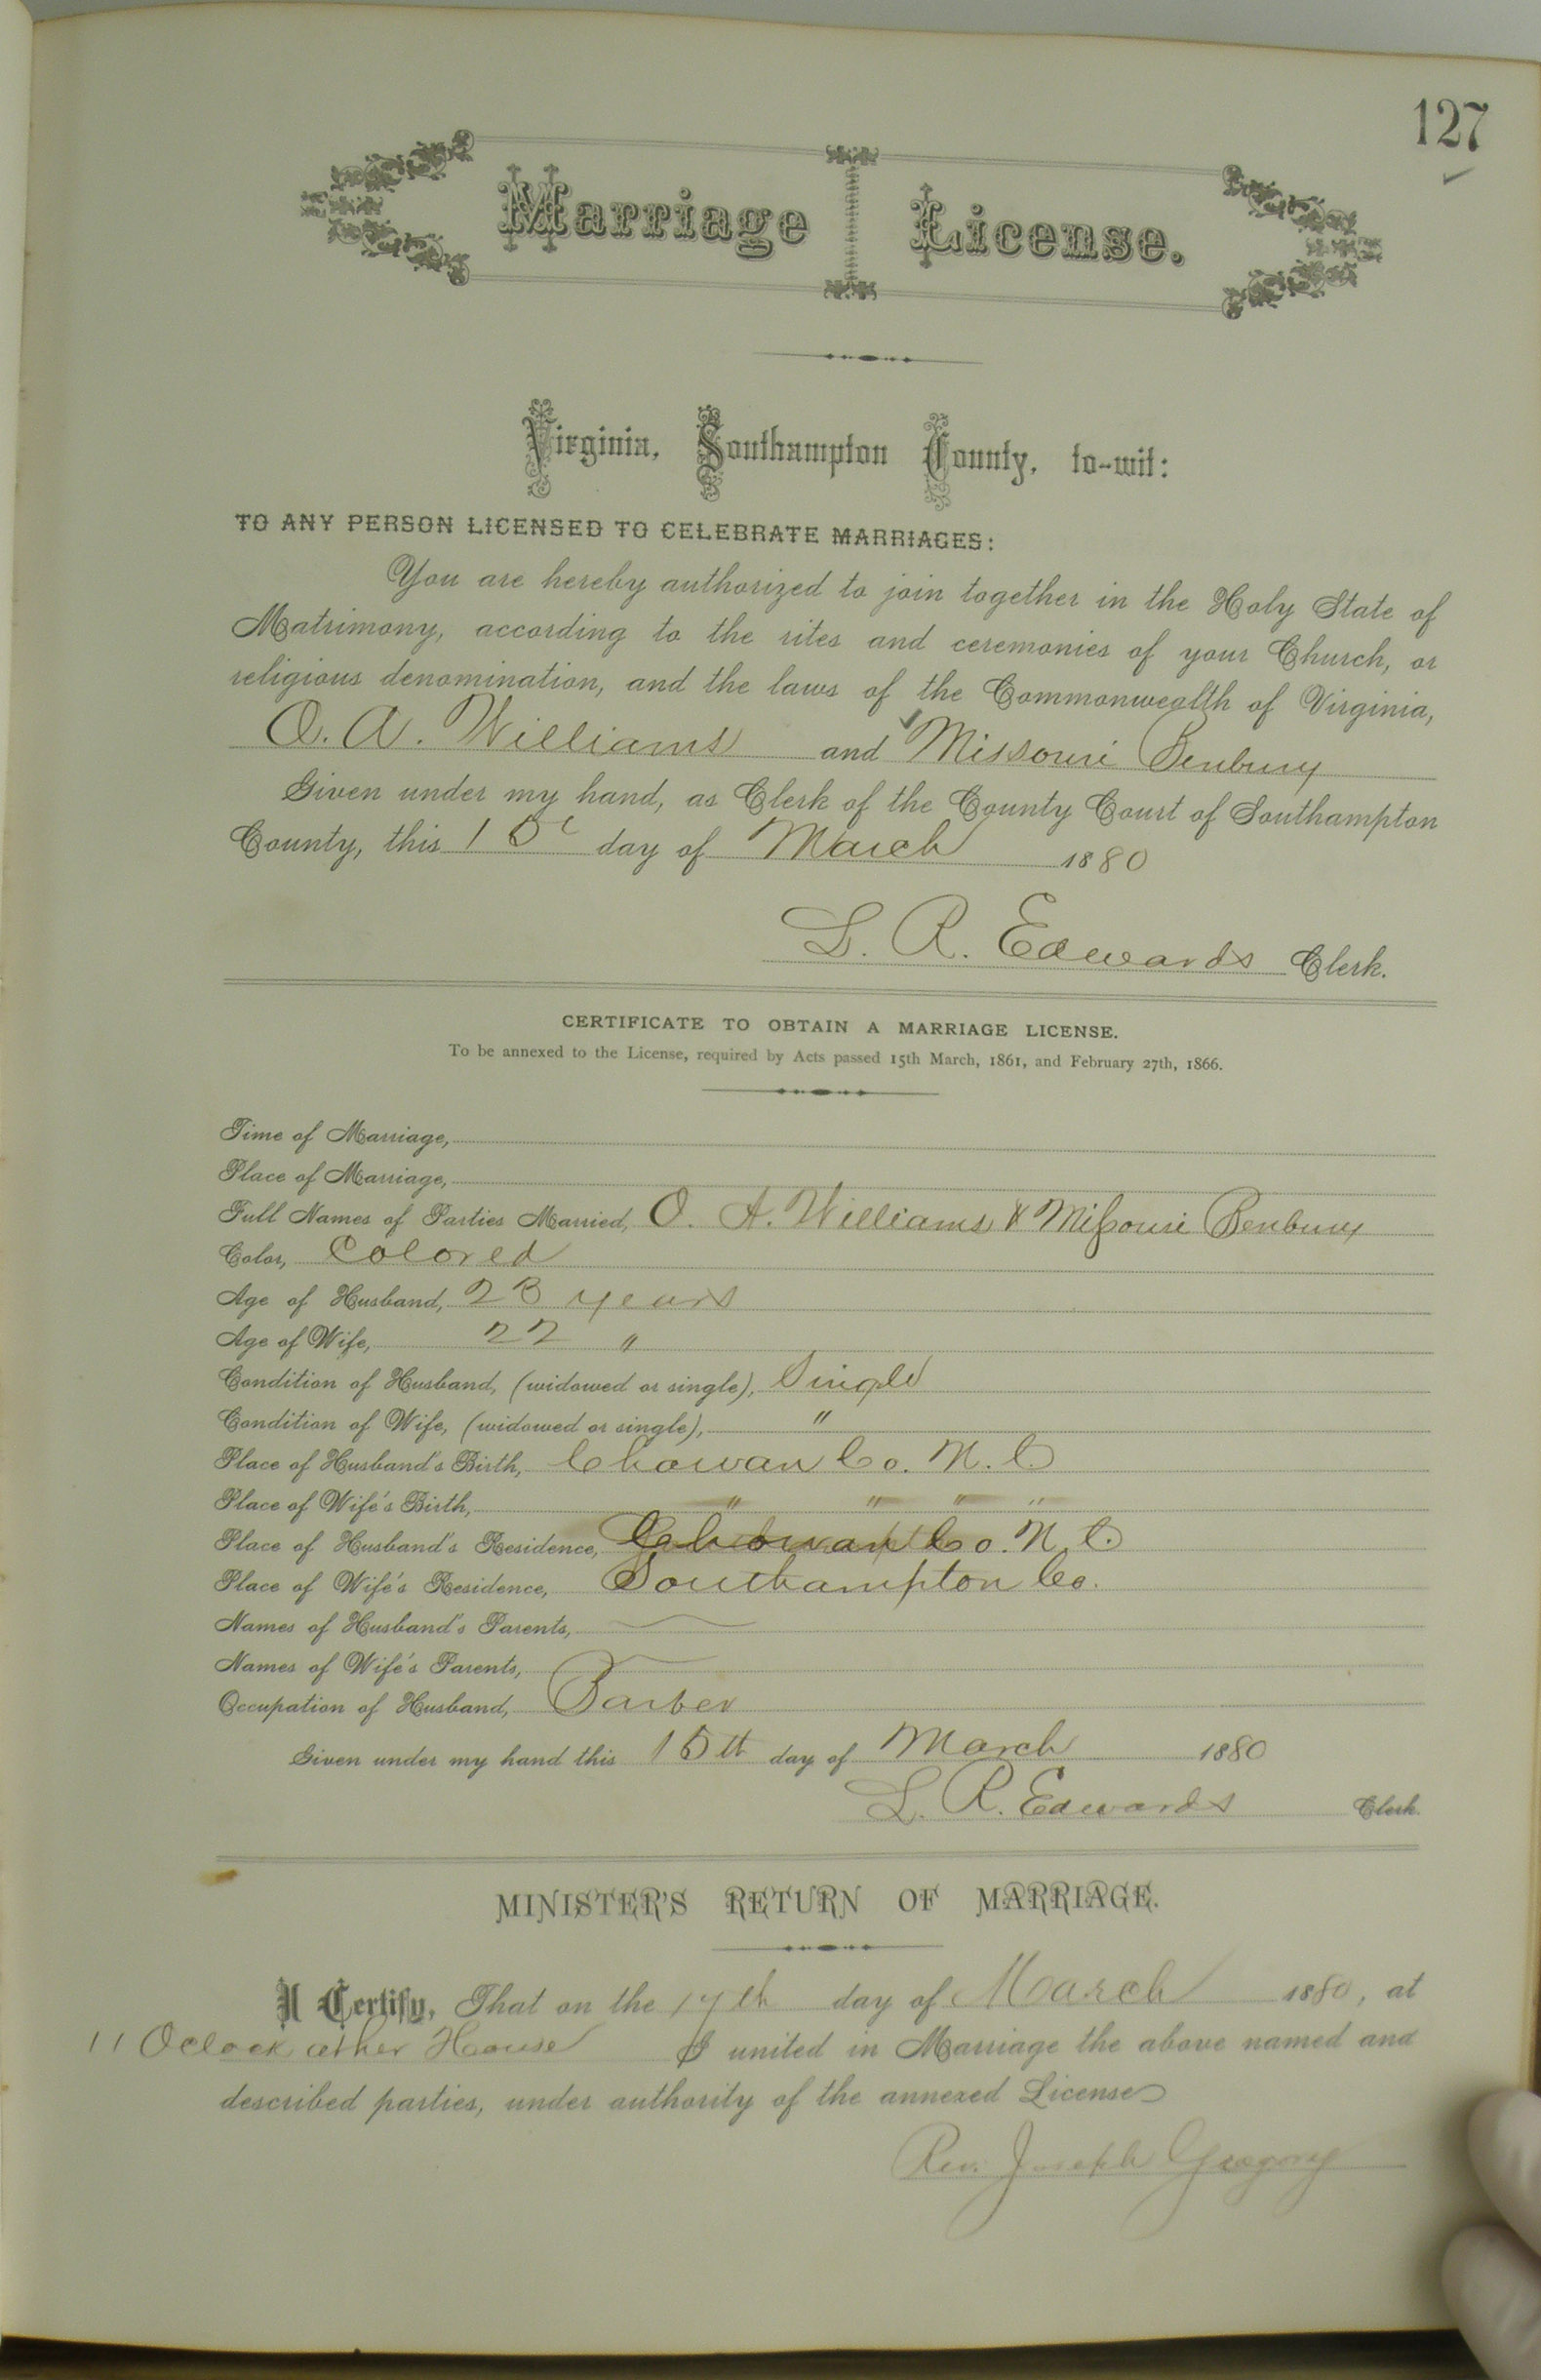 127
Marriage License.
Virginia, Southampton County, to-wit:
TO ANY PERSON LICENSED TO CELEBRATE MARRIAGES:
You are hereby authorized to join together in the Holy State of
Matrimony, according to the rites and ceremonies of your Church, or
religious denomination, and the laws of the Commonwealth of Virginia,
O. A. Williams and Missouri Benbury
Given under my hand, as Clerk of the County Court of Southampton
County, this 15th day of March 1880
L. R. Edwards Clerk.
CERTIFICATE TO OBTAIN A MARRIAGE LICENSE.
To be annexed to the License, required by Acts passed 15th March, 1861, and February 27th, 1866.
Time of Marriage,
Place of Marriage,
Full Names of Parties Married, O. A. Williams & Missouri Benbury
Color, Colored
Age of Husband, 23 years
Age of Wife, 22 "
Condition of Husband, (widowed or single), Single
Condition of Wife, (widowed or single), "
Place of Husband's Birth, Chowan Co. N. C.
Place of Wife's Birth, " " " "
Place of Husband's Residence, Chowan Co. N. C.
Place of Wife's Residence, Southampton Co.
Names of Husband's Parents,
Names of Wife's Parents,
Occupation of Husband, Barber
Given under my hand this 15th day of March 1880
L. R. Edwards Clerk.
MINISTER'S RETURN OF MARRIAGE.
I Certify, That on the 17th day of March 1880, at
11 Oclock at her House I united in Marriage the above named and
described parties, under authority of the annexed License
Rev. Joseph Gregory